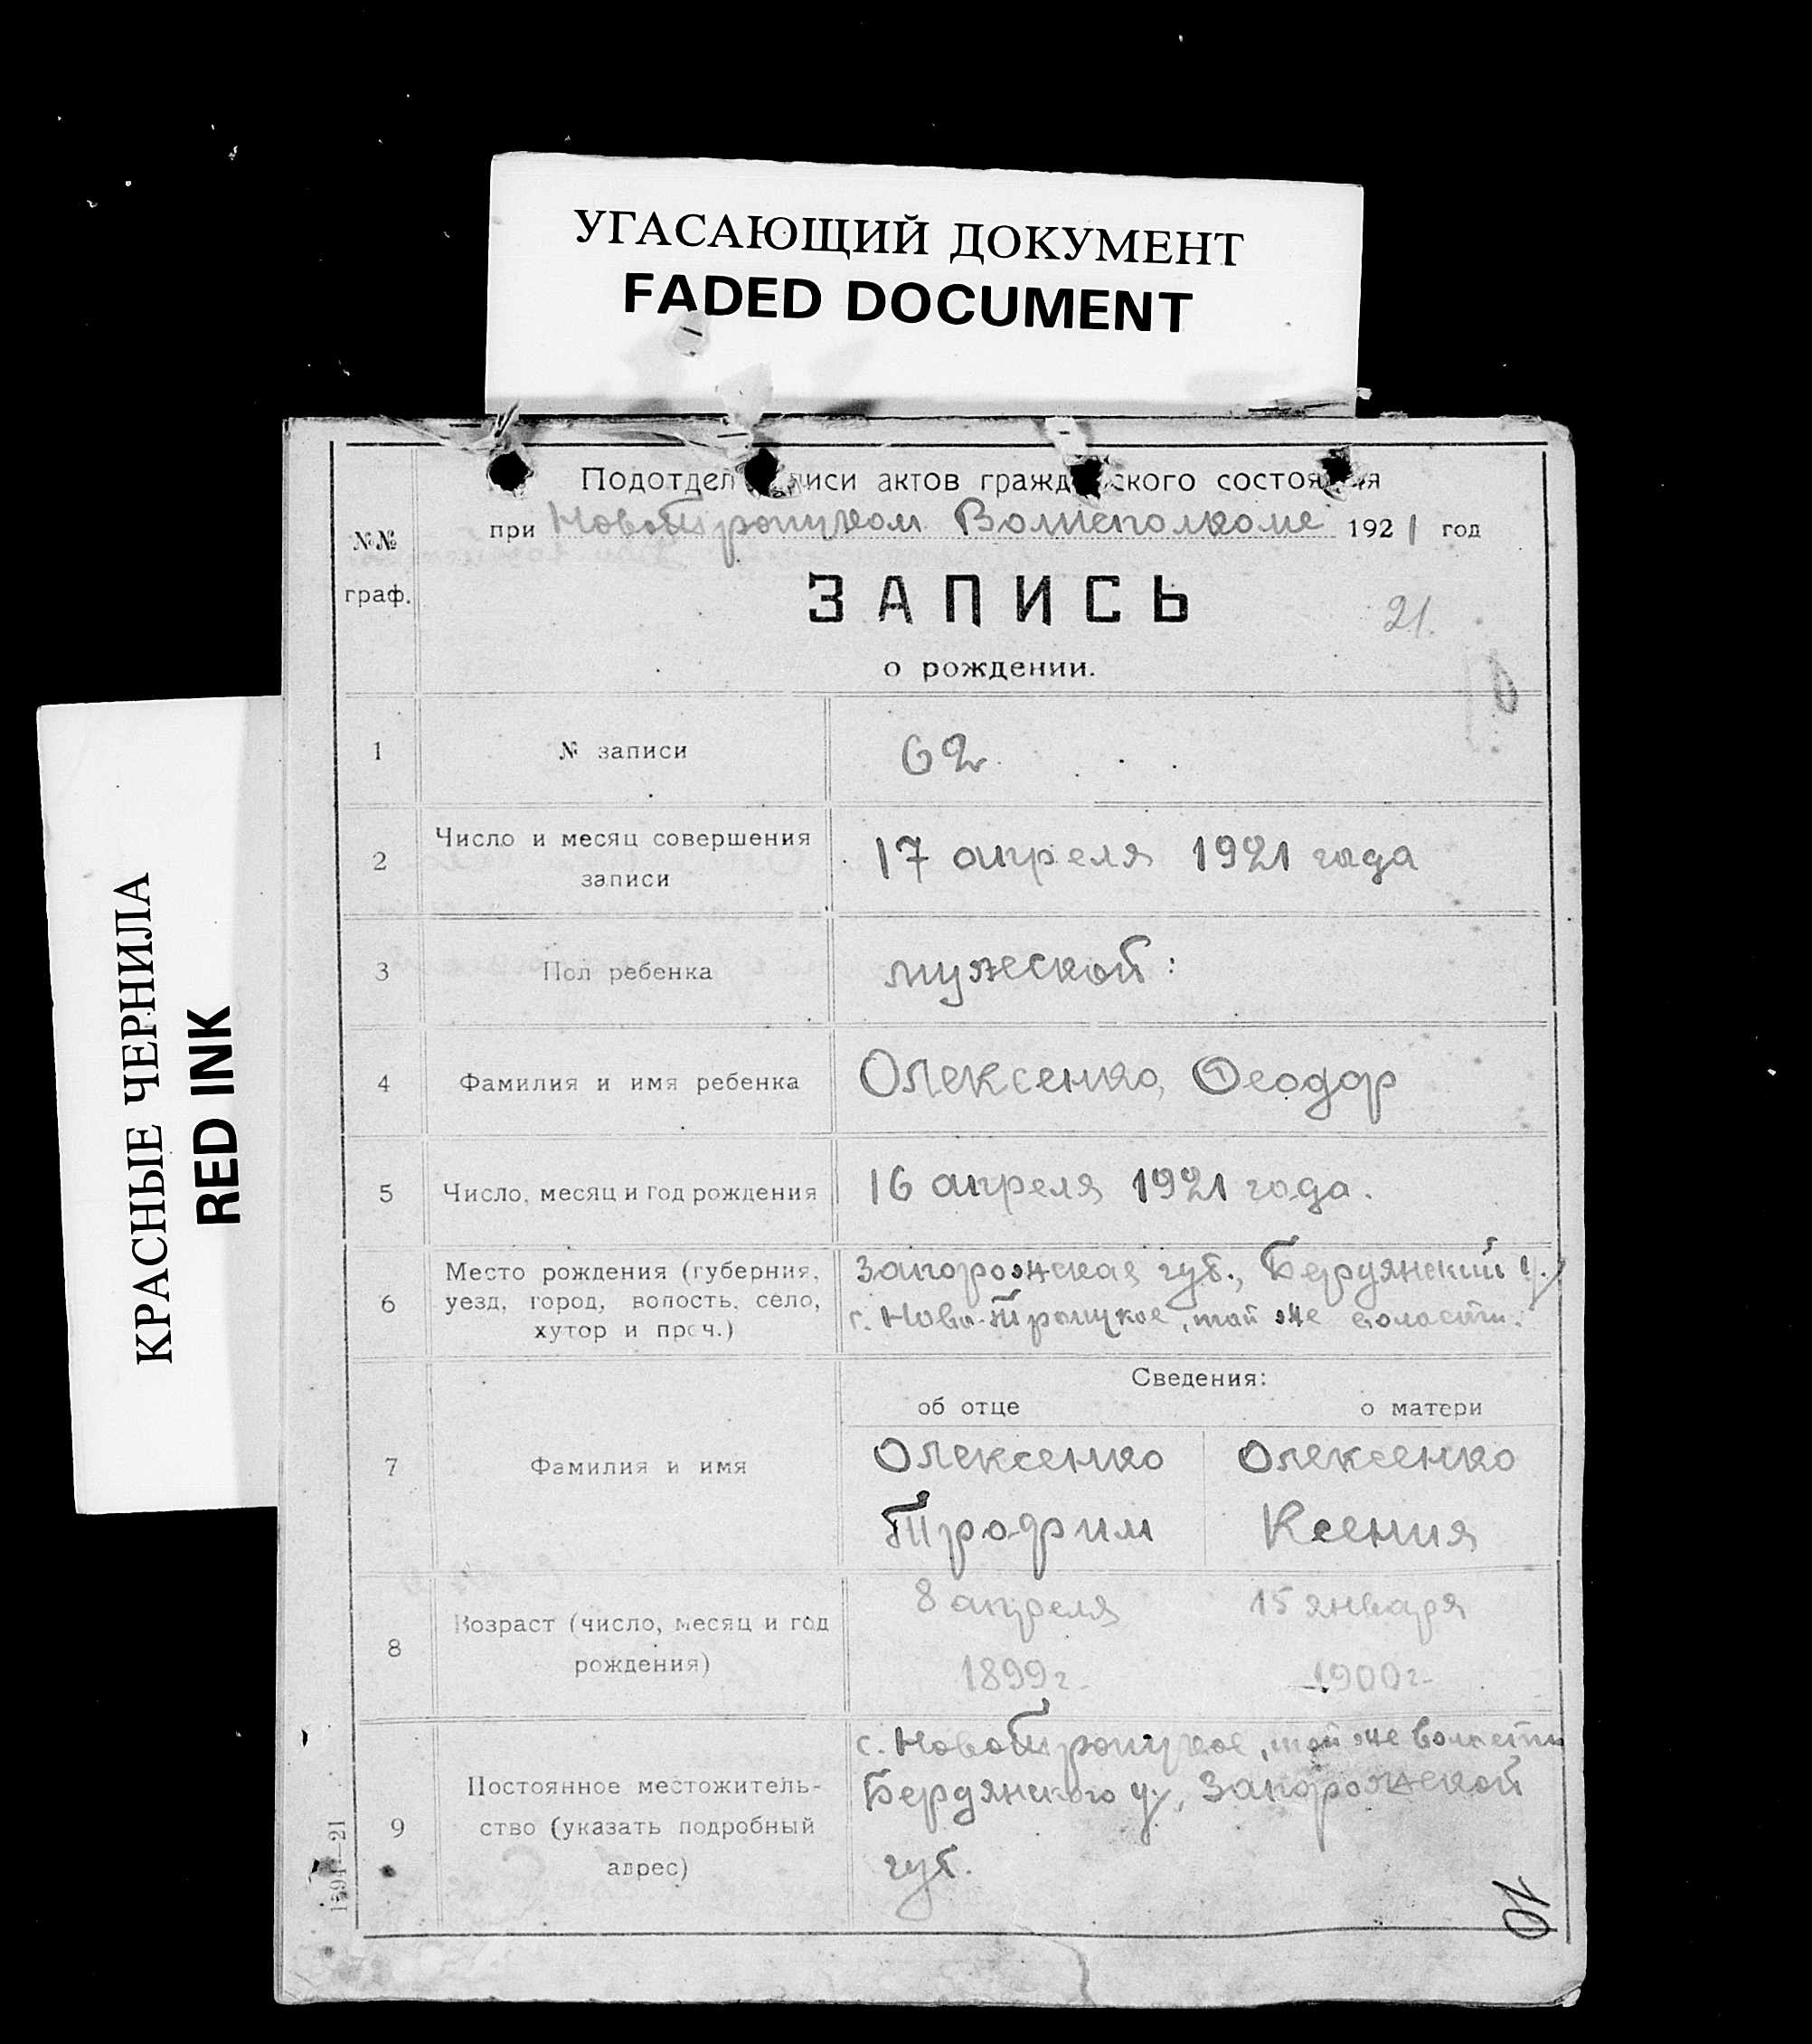 УГАСАЮЩИЙ ДОКУМЕНТ
FADED DOCUMENT
КРАСНЫЕ ЧЕРНИЛА
RED INK
Подотдел писи актов гражд ского состоя я
при Новотроицком Волисполкоме 1921 год
№№
граф.
ЗАПИСЬ
21.
о рождении.
1 № записи 62
2 Число и месяц совершения записи 17 апреля 1921 года
3 Пол ребенка мужеской:
4 Фамилия и имя ребенка Олексенко, Ѳеодор
5 Число, месяц и год рождения 16 апреля 1921 года.
6 Место рождения (губерния, уезд, город, волость, село, хутор и проч.)
Запорожская губ., Бердянский у.,
с. Ново-Троицкое, той же волости.
Сведения:
об отце о матери
7 Фамилия и имя
Олексенко Олексенко
Трофим Ксения
8 Возраст (число, месяц и год рождения)
8 апреля 15 января
1899 г. 1900 г.
9 Постоянное местожительство (указать подробный адрес)
с. Новотроицкое, той же волости
Бердянского у., Запорожской
губ.
1594—21
10